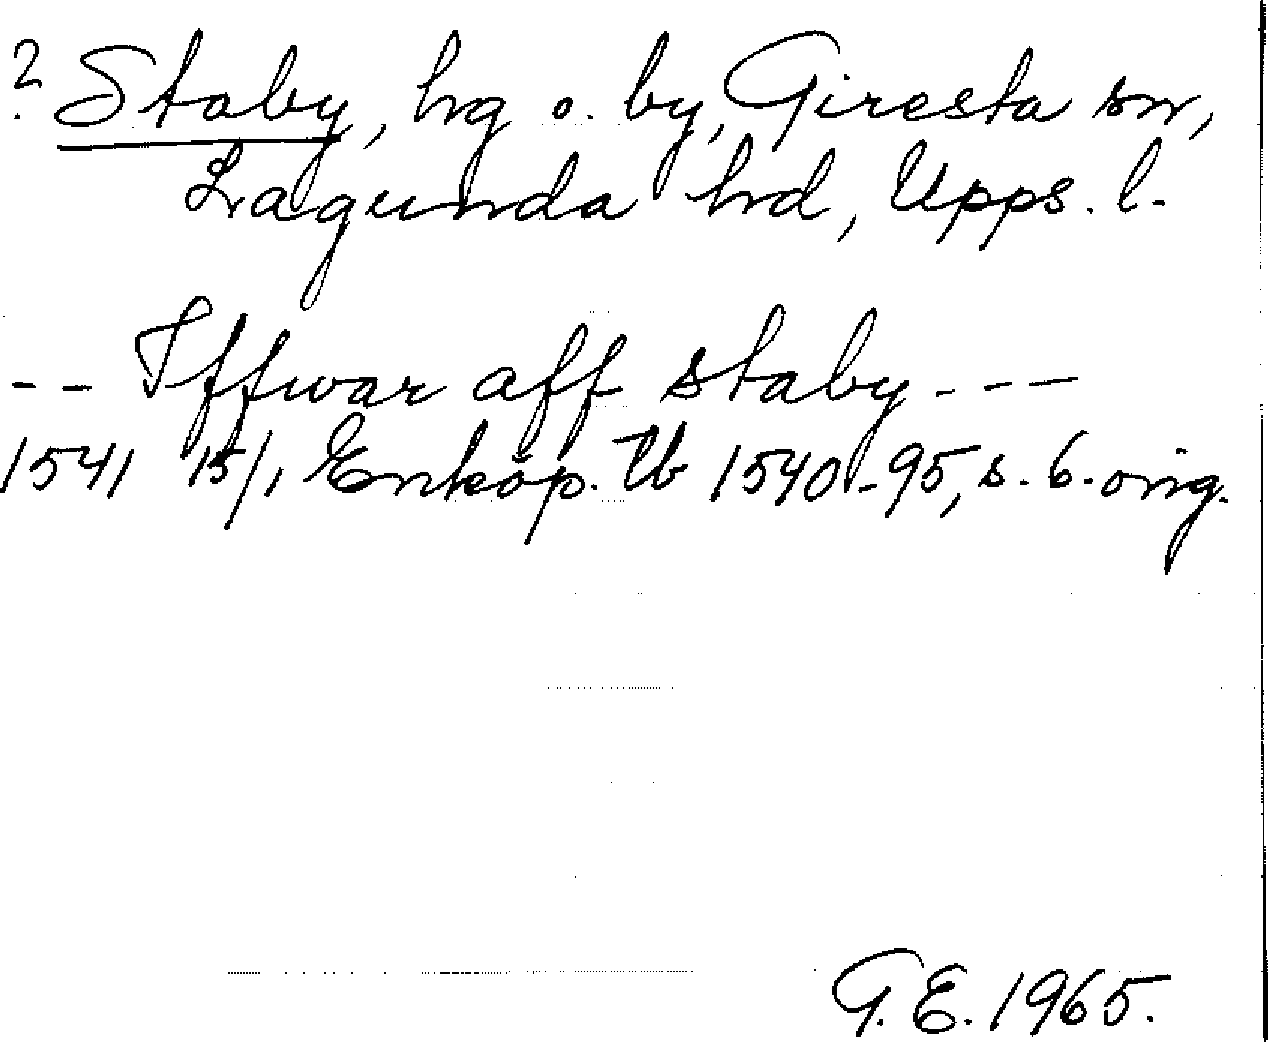 ? Staby, hg o. by, Giresta sn,
Lagunda hd, Upps. l.
-- Iffwar aff staby ---
1541 15/1 Enköp. tb 1540-95, s. 6. orig.
G.E. 1965.